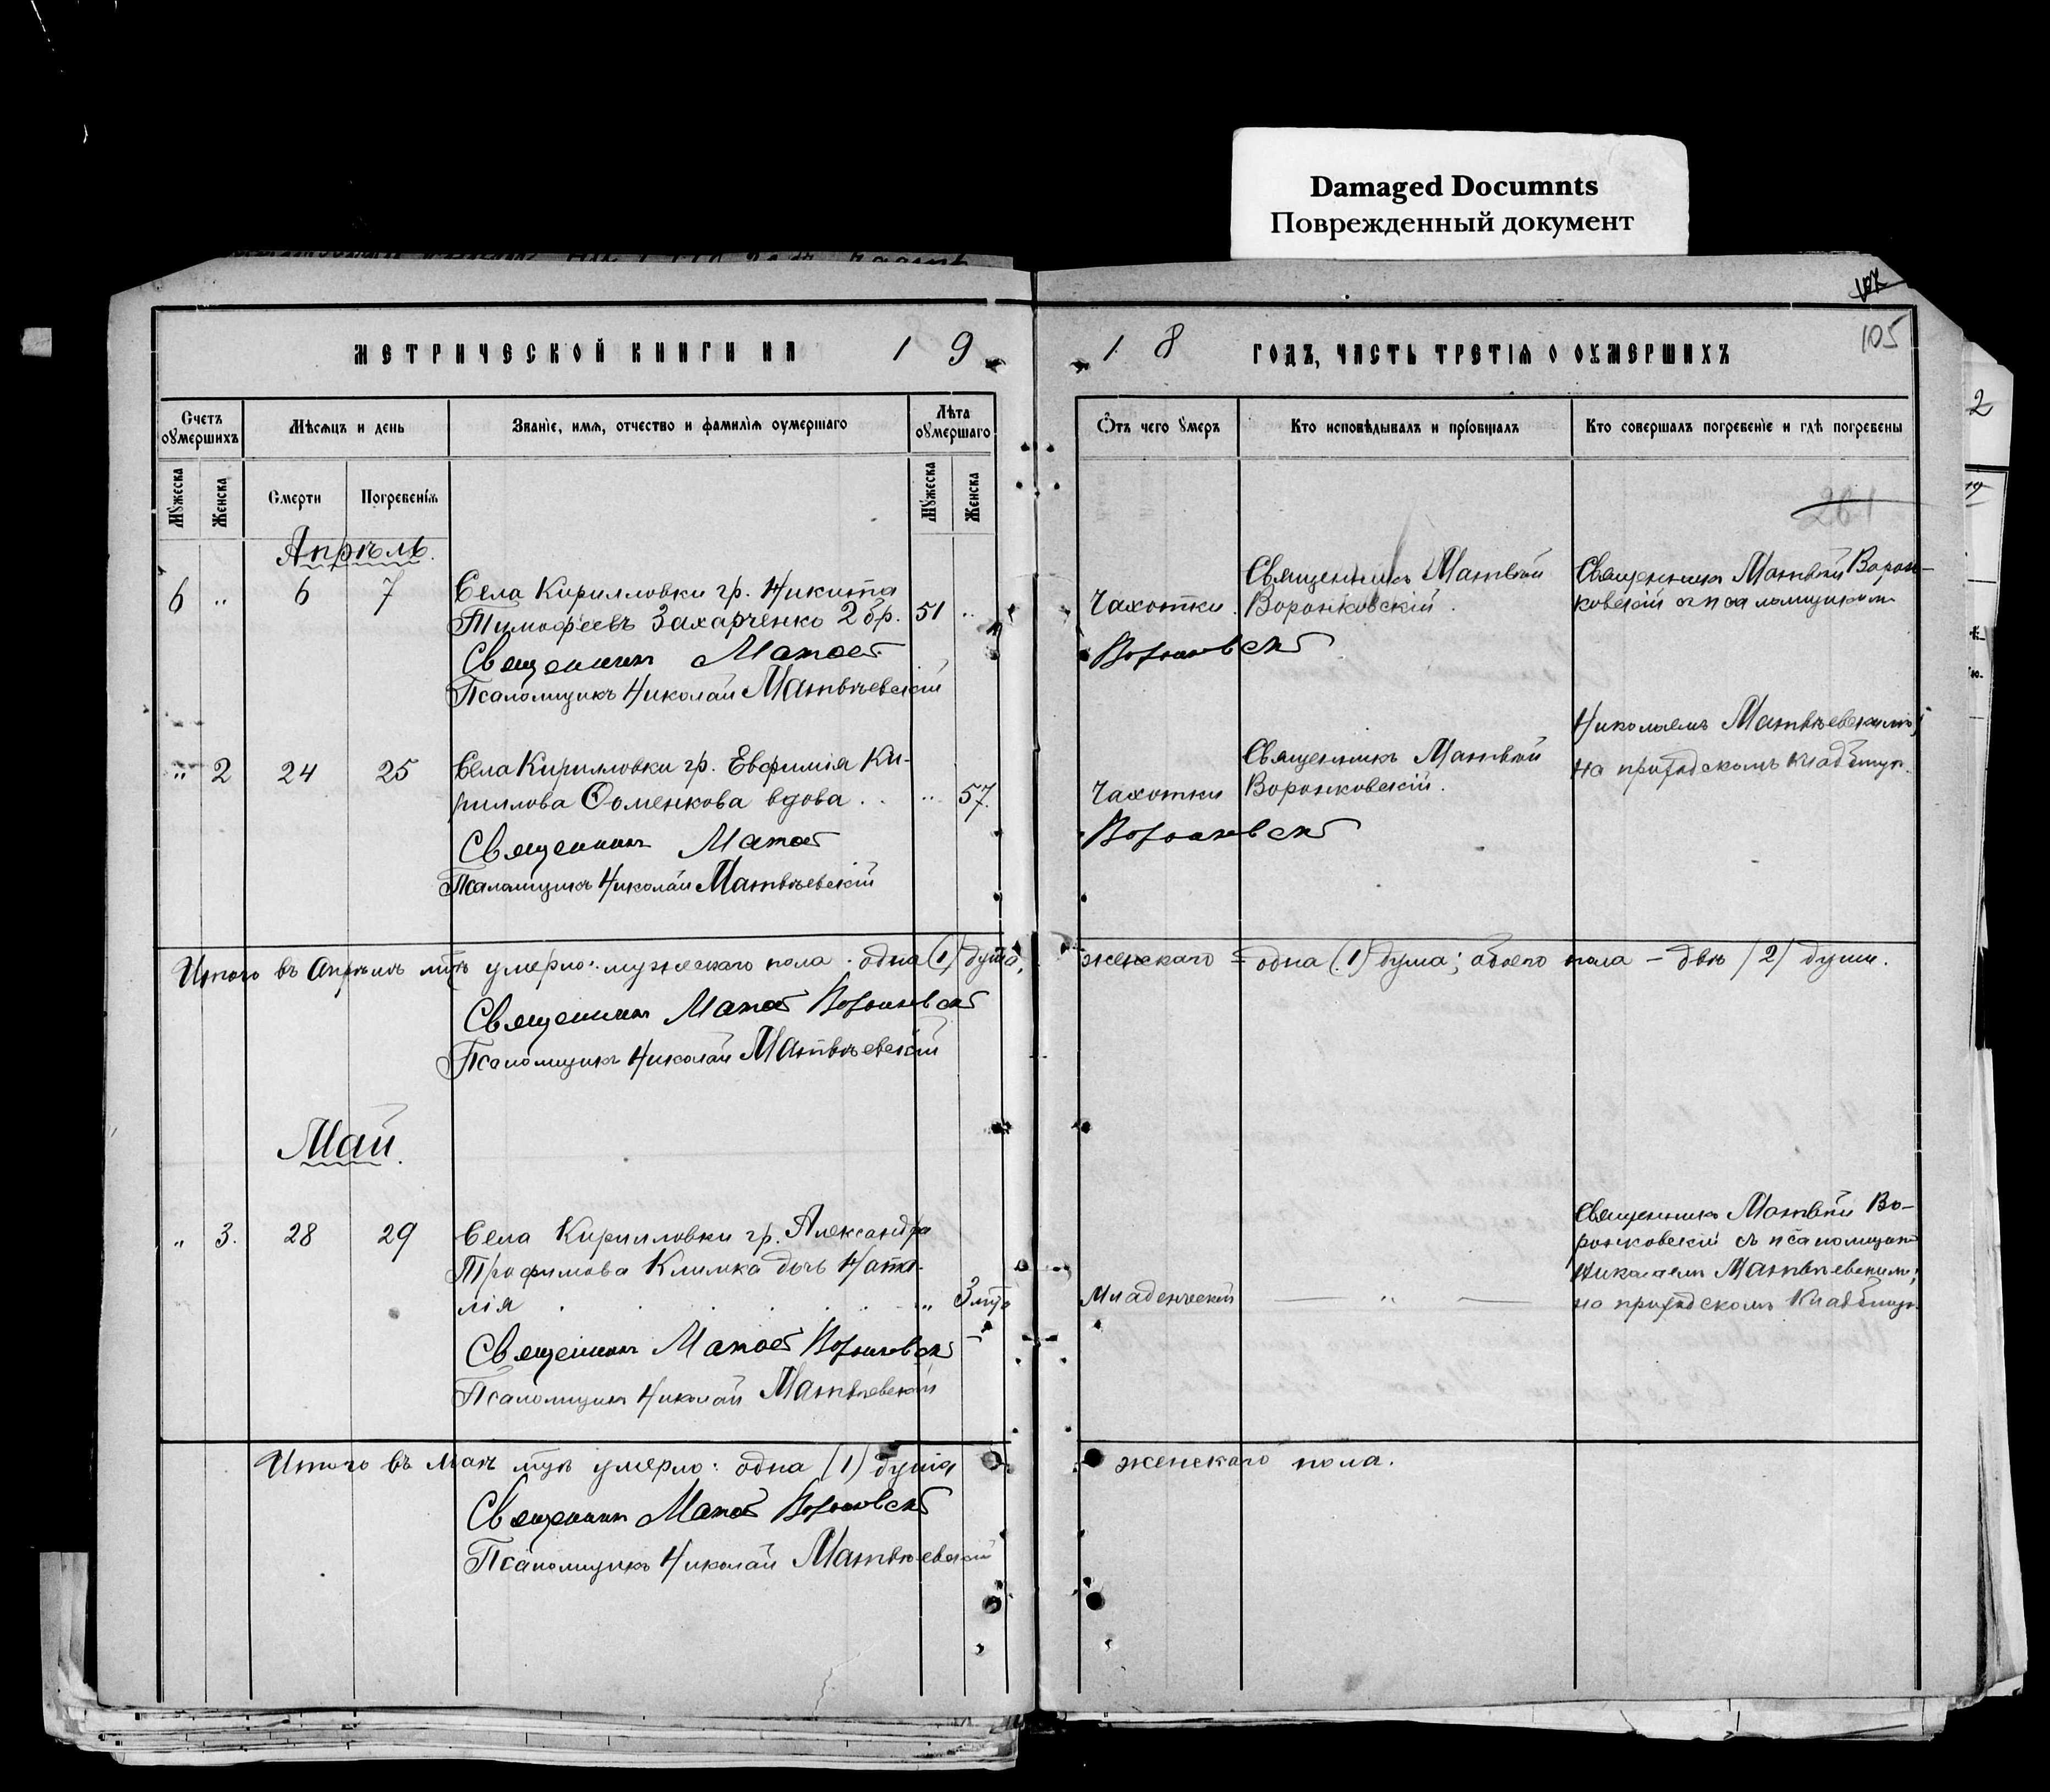 Damaged Documnts
Поврежденный документ
105
МЕТРИЧЕСКОЙ КНИГИ НА 1 9
1 8 ГОДЪ, ЧАСТЬ ТРЕТІѦ О ОУМЕРШИХЪ
Счетъ оумершихъ
Мѣсѧцъ и день
Званіе, имѧ, отчество и фамиліѧ оумершаго
Лѣта оумершаго
Ѿтъ чего умеръ
Кто исповѣдывалъ и пріобщалъ
Кто совершалъ погребеніе и гдѣ погребены
Мужеска
Женска
Смерти
Погребеніѧ
Мужеска
Женска
261
Апрѣль.
6 " 6 7
Села Кирилловки гр. Никита
Тимофеевъ Захарченко 2 бр. 51 "
Священникъ Матвей
Псаломщикъ Николай Матвѣевскій
Чахотки
Священникъ Матвѣй
Воронковскій.
Воронковскій
Священникъ Матвѣй Ворон-
ковскій съ псаломщикомъ
Николаемъ Матвѣевскимъ;
на приходскомъ кладбищѣ.
" 2 24 25
Села Кирилловки гр. Евфимія Ки-
риллова Фоменкова вдова . . " 57.
Священникъ Матвей
Псаломщикъ Николай Матвѣевскій
Чахотки
Священникъ Матвѣй
Воронковскій.
Воронковскій
Итого въ Апрѣлѣ мцѣ умерло: мужескаго пола - одна (1) душа,
женскаго - одна (1) душа; обоего пола - двѣ (2) души.
Священникъ Матвей Воронковскій
Псаломщикъ Николай Матвѣевскій
Май.
" 3. 28 29
Села Кирилловки гр. Александра
Трофимова Климка дочь Ната-
лія . . . . . " 3 мца
Священникъ Матвей Воронковскій
Псаломщикъ Николай Матвѣевскій
Младенческой
— " —
Священникъ Матвѣй Во-
ронковскій съ псаломщикомъ
Николаемъ Матвѣевскимъ;
на приходскомъ кладбищѣ.
Итого въ Маѣ мцѣ умерло: одна (1) душа
женскаго пола.
Священникъ Матвей Воронковскій
Псаломщикъ Николай Матвѣевскій